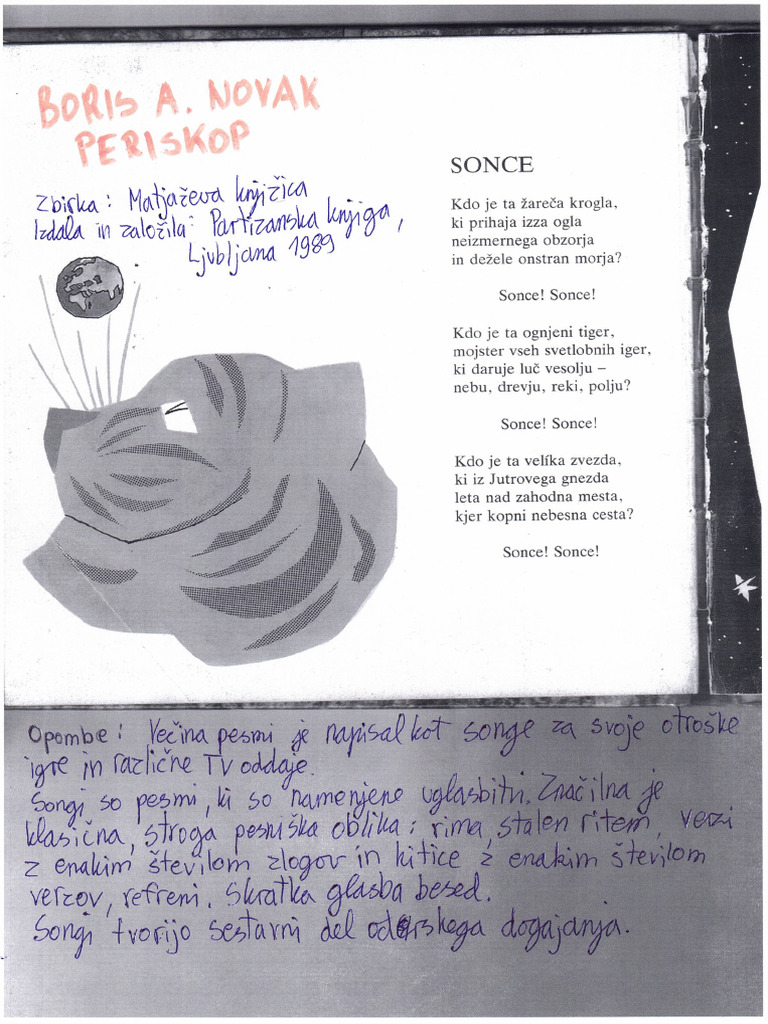 BORIS A. NOVAK
PERISKOP
Zbirka: Matjaževa knjižica
Izdala in založila: Partizanska knjiga,
Ljubljana 1989
SONCE
Kdo je ta žareča krogla,
ki prihaja izza ogla
neizmernega obzorja
in dežele onstran morja?
Sonce! Sonce!
Kdo je ta ognjeni tiger,
mojster vseh svetlobnih iger,
ki daruje luč vesolju –
nebu, drevju, reki, polju?
Sonce! Sonce!
Kdo je ta velíka zvezda,
ki iz Jutrovega gnezda
leta nad zahodna mesta,
kjer kopni nebesna cesta?
Sonce! Sonce!
Opombe: Večina pesmi je napisal kot songe za svoje otroške
igre in različne TV oddaje.
Songi so pesmi, ki so namenjene uglasbitvi. Značilna je
klasična, stroga pesniška oblika: rima, stalen ritem, verzi
z enakim številom zlogov in kitice z enakim številom
verzov, refreni. Skratka glasba besed.
Songi tvorijo sestavni del odrskega dogajanja.